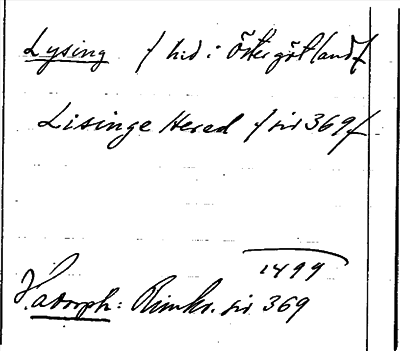 Lysing / hd i Östergötland /
Lisinge Herad / sid 369 /
1499
Hadorph: Rimkr. sid. 369